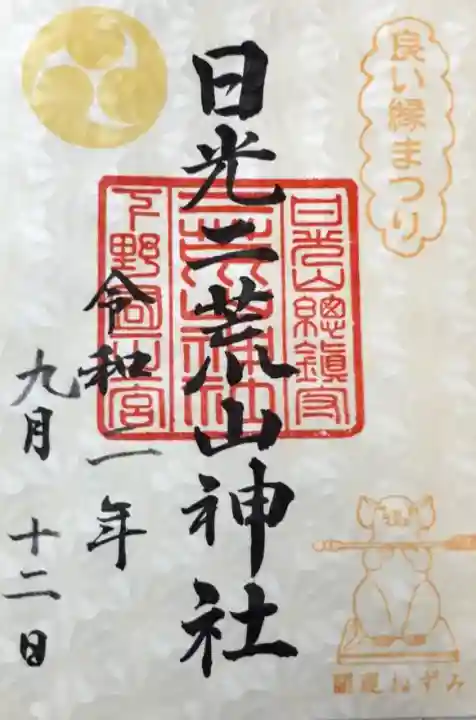 良い縁まつり
日光二荒山神社
日光山總鎮守
二荒山神社
下野國一宮
令和二年
九月十二日
開運ねずみ